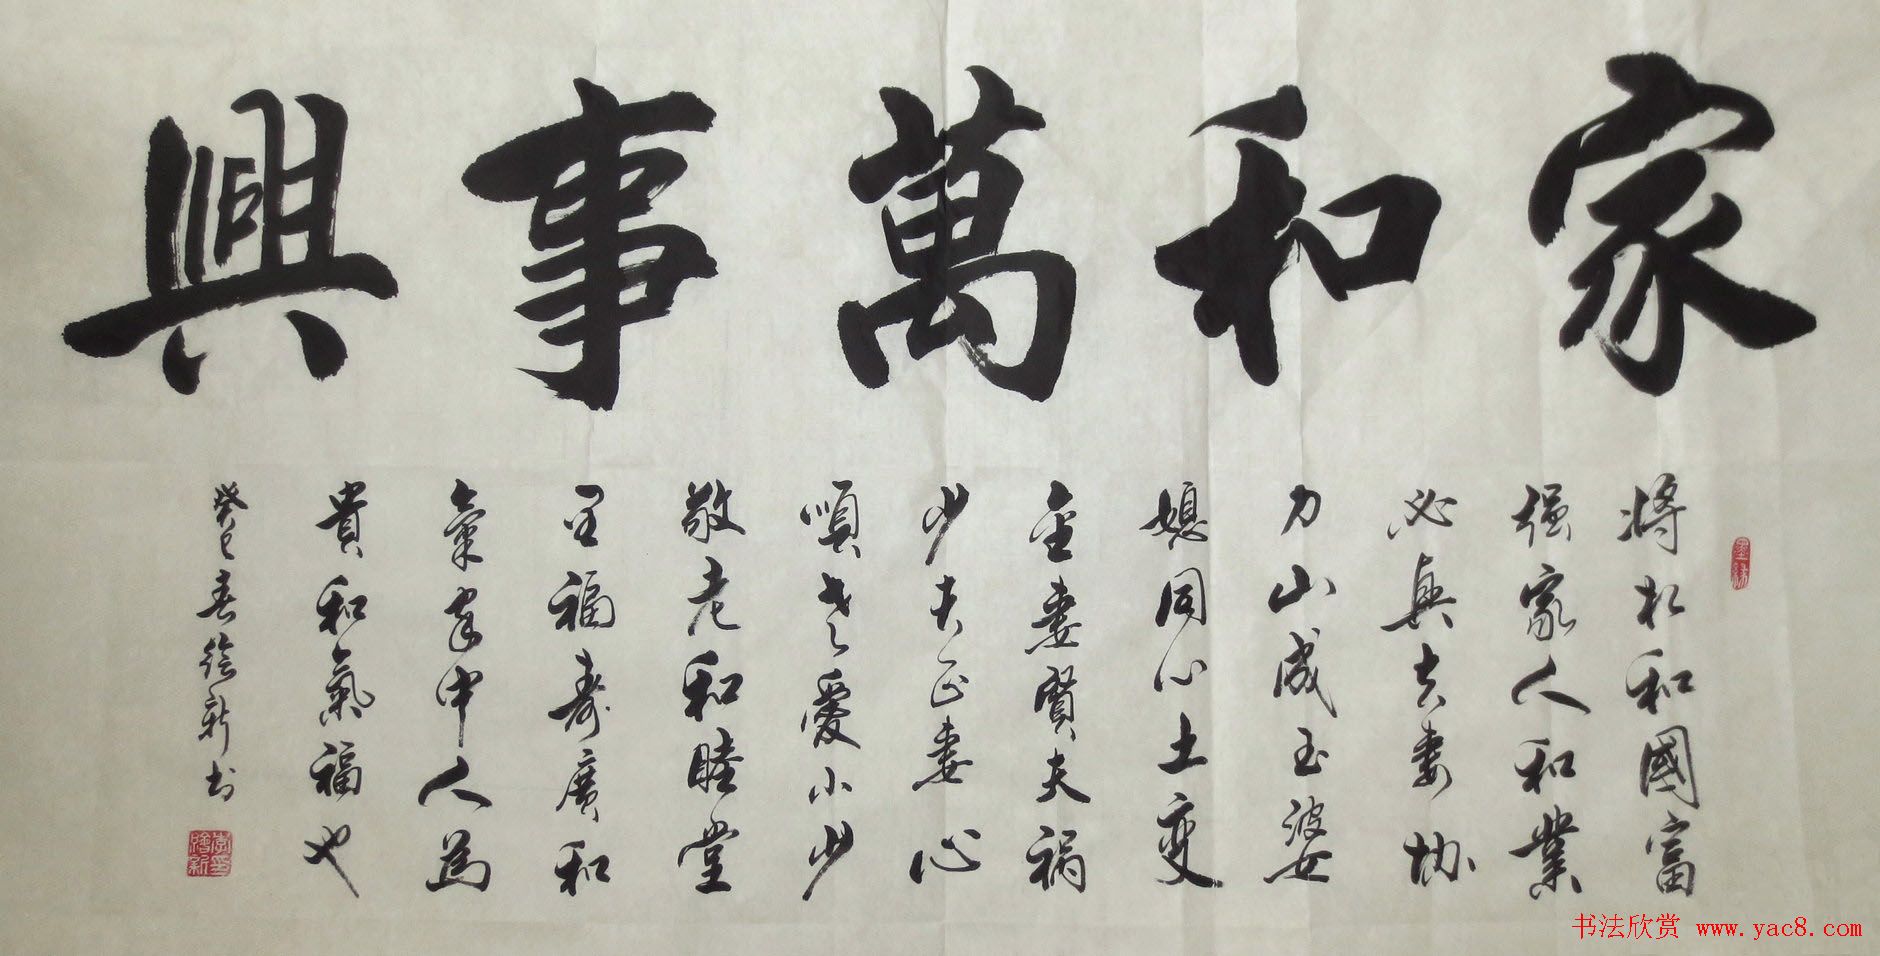 家和萬事興
將相和國富
强家人和業
必興夫妻协
力山成玉婆
媳同心土变
金妻賢夫祸
少夫正妻心
順老愛小少
敬老和睦堂
呈福壽廣和
氣家中人為
貴和氣福也
癸巳春绘新书
书法欣赏 www.yac8.com